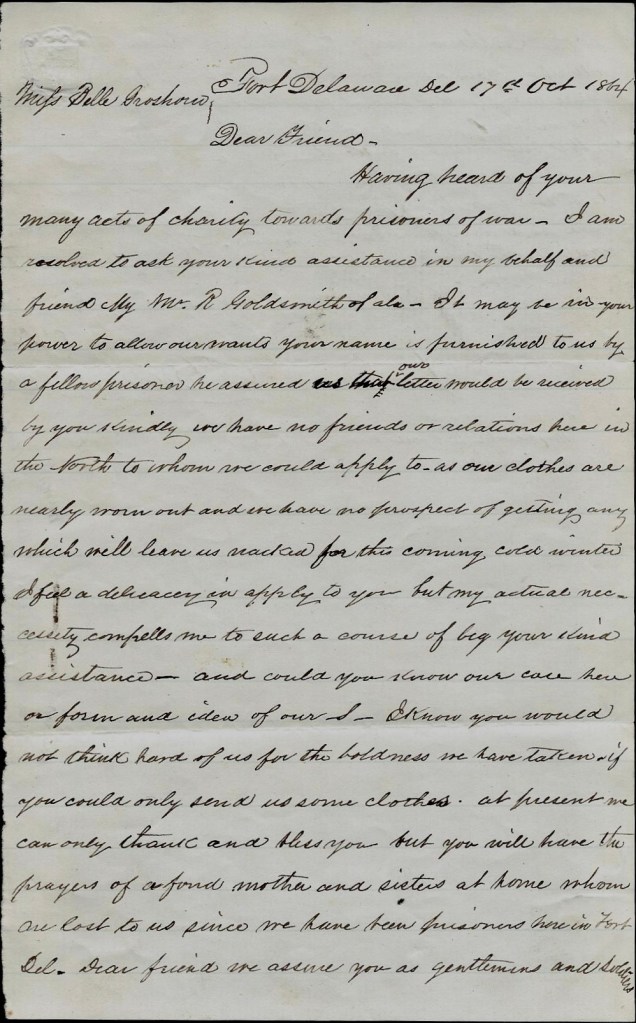 Fort Delaware Del 17th Oct 1864
Miss Belle
Dear Friend -
Having heard of your
many acts of charity towards prisoners of war - I am
resolved to ask your kind assistance in my behalf and
friend My Mr. R Goldsmith of ala - It may be in your
power to allow our wants your name is furnished to us by
a fellow prisoner he assured us that our letter would be received
by you kindly we have no friends or relations here in
the North to whom we could apply to - as our clothes are
nearly worn out and we have no prospect of getting any
which will leave us nacked for this coming cold winter
I feel a delicacey in apply to you but my actual nec-
cessety compells me to such a course of beg your kind
assistance - and could you know our case here
or form and idea of our S - I know you would
not think hard of us for the boldness we have taken - if
you could only send us some clothes. at present we
can only thank and bless you but you will have the
prayers of a fond mother and sisters at home whom
are lost to us since we have been prisoners here in Fort
Del - Dear friend we assure you as gentlemens and soldiers